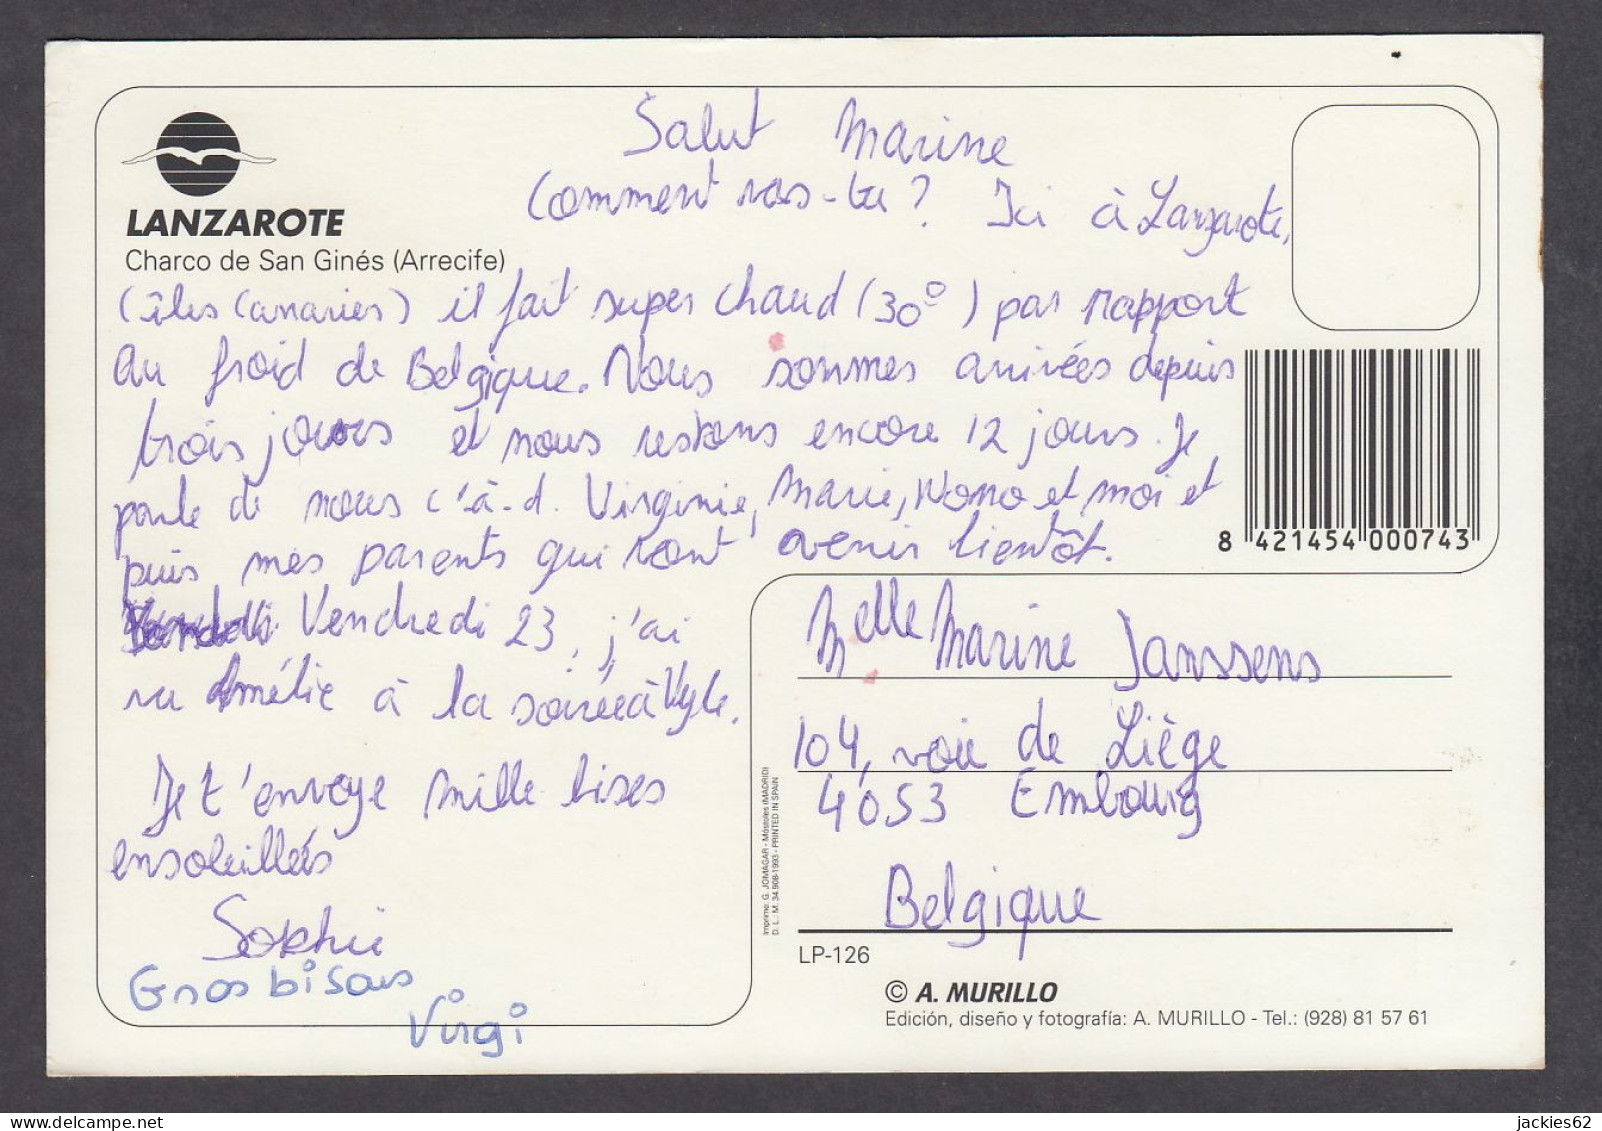 LANZAROTE
Charco de San Ginés (Arrecife)
Salut Marine
Comment vas-tu? Ici à Lanzarote,
(îles Canaries) il fait super chaud (30°) par rapport
au froid de Belgique. Nous sommes arrivées depuis
trois jours et nous restons encore 12 jours. Je
parle de nous c'à-d. Virginie, Marie, Nono et moi et
puis mes parents qui vont avenir bientôt.
Vendredi 23, j'ai
vu Amélie à la soirée à Vyle.
Je t'envoye mille bises
ensoleillées
Sophie
Gros bisous
Virgi
8 421454 000743
Melle Marine Janssens
104, voie de Liège
4053 Embourg
Belgique
Imprime: G. JOMAGAR - Móstoles (MADRID)
D. L.: M. 34.908-1993 - PRINTED IN SPAIN
LP-126
© A. MURILLO
Edición, diseño y fotografía: A. MURILLO - Tel.: (928) 81 57 61
jackies62